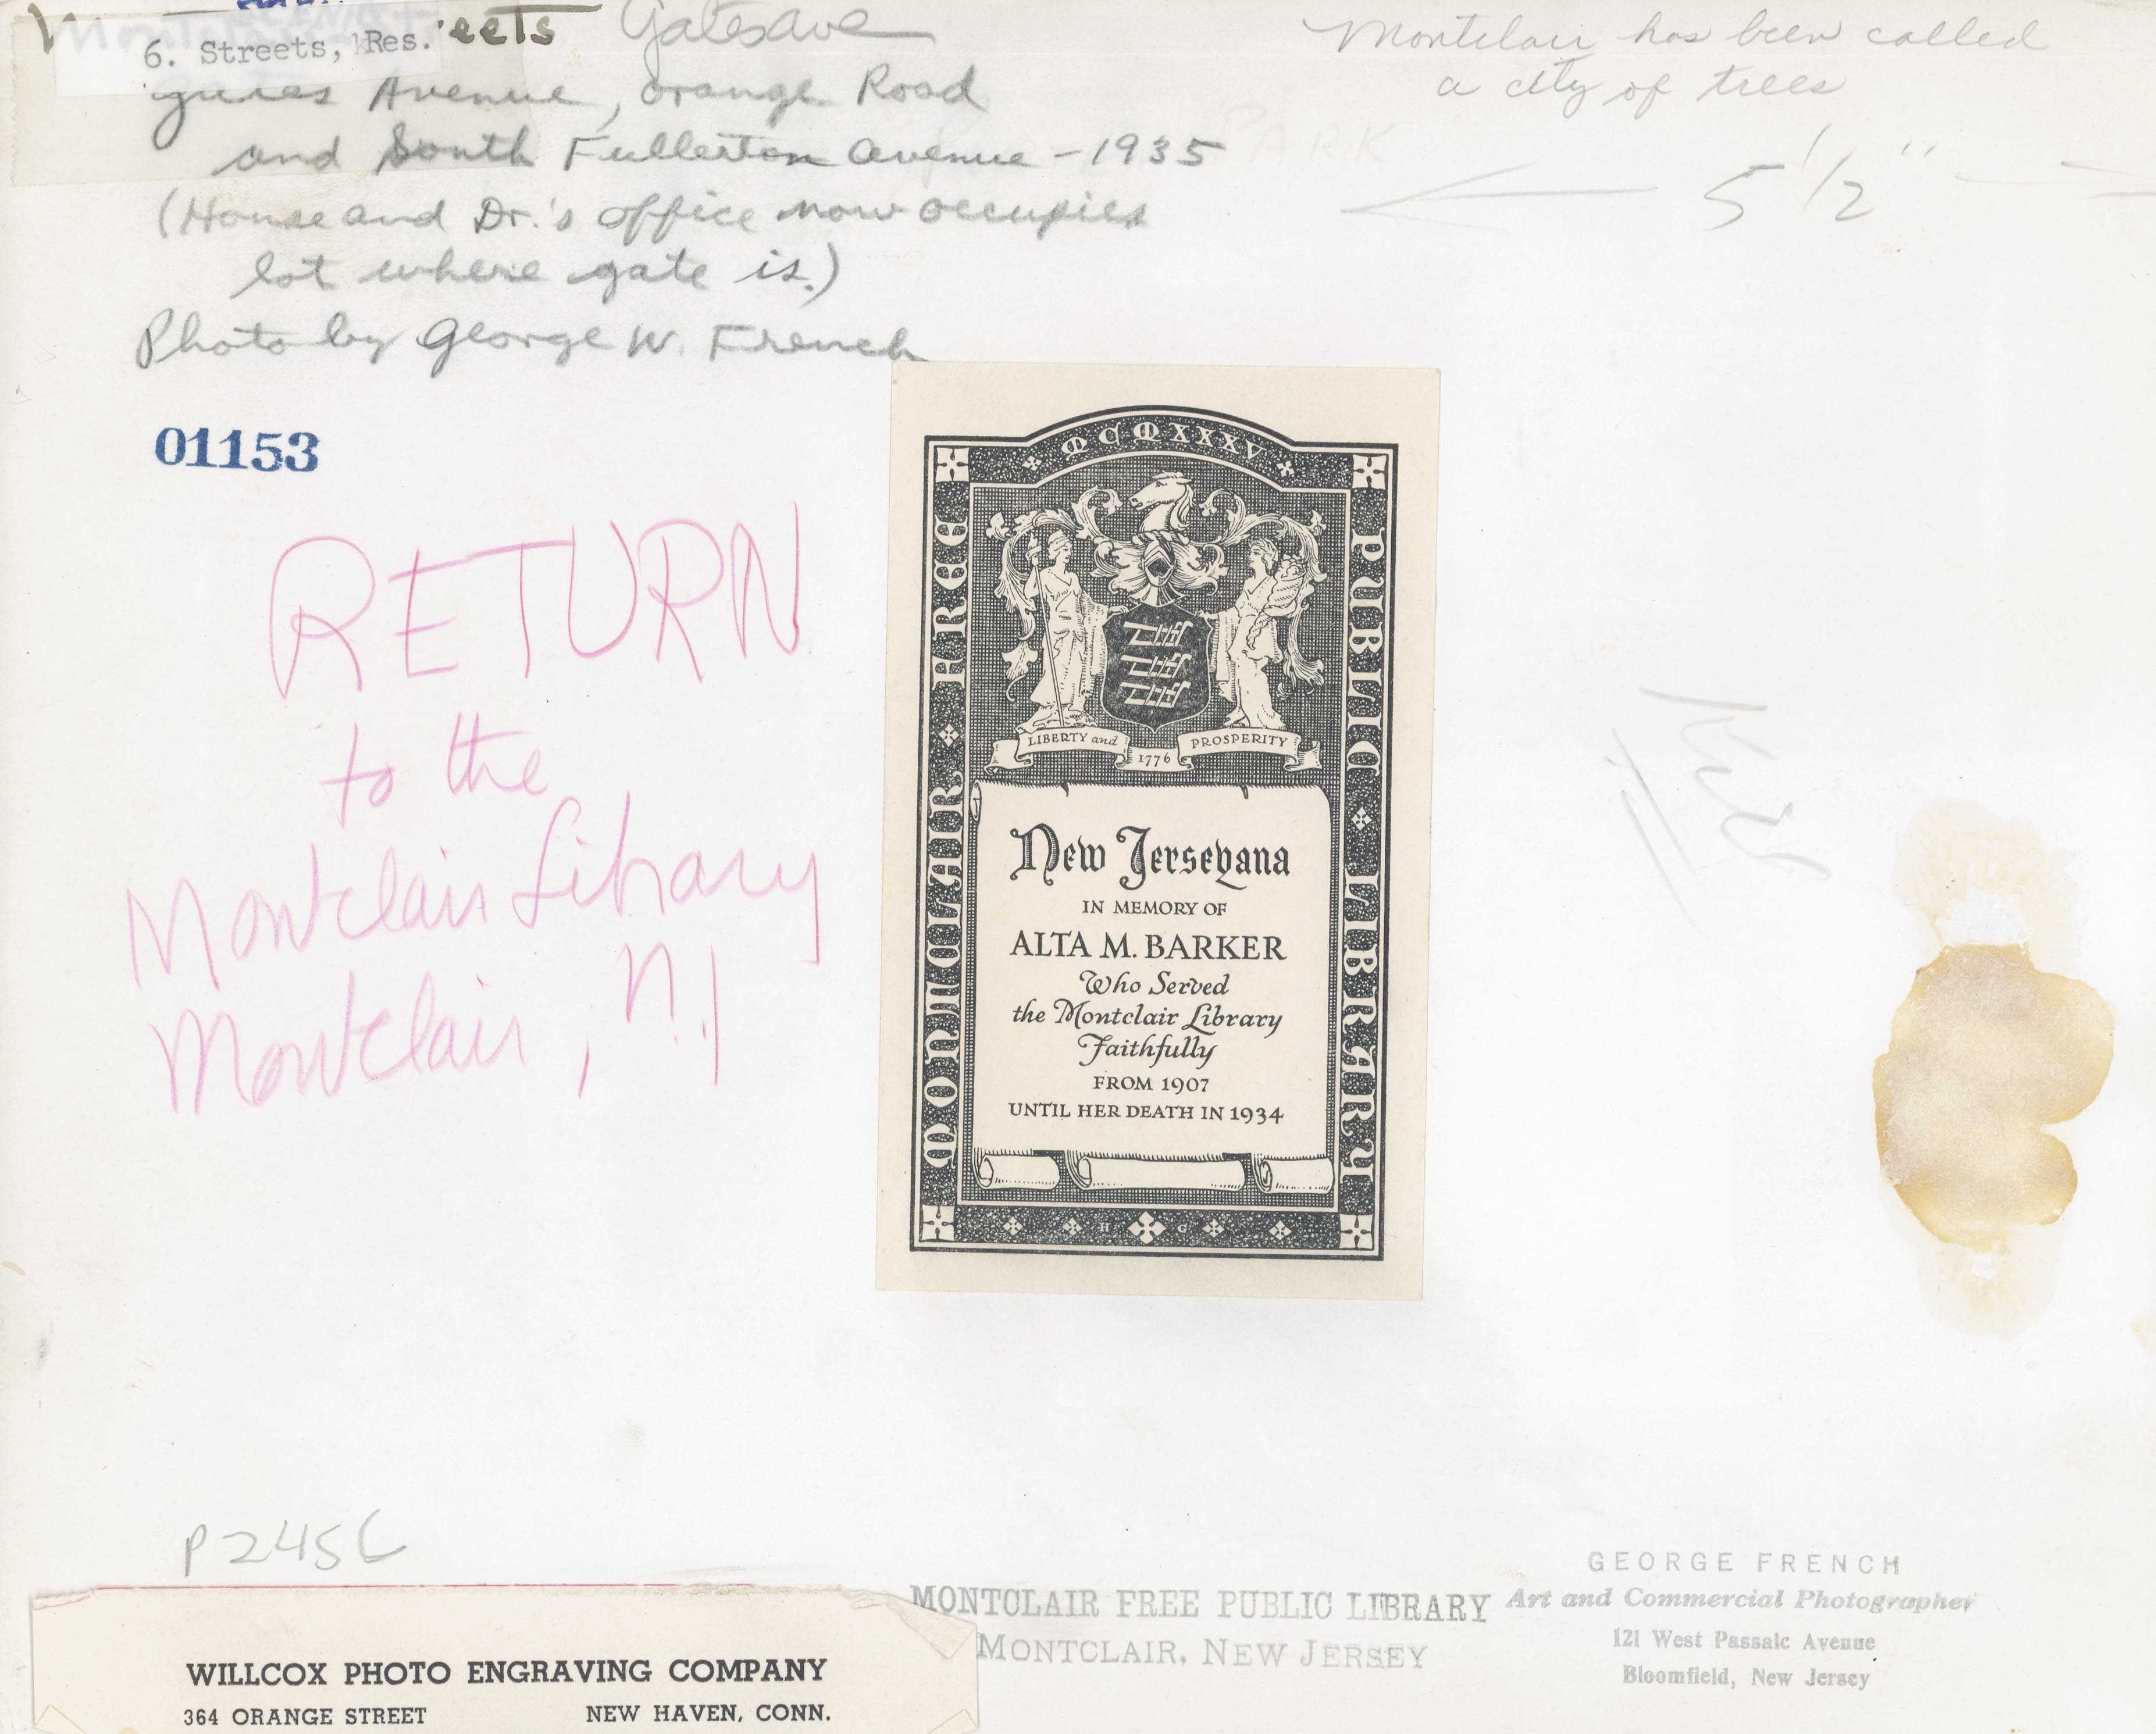 6. Streets, Res.
eets Gates Ave
Gates Avenue, Orange Road
and South Fullerton Avenue - 1935
(House and Dr.'s office now occupies
lot where gate is.)
Photo by George W. French
Montclair has been called
a city of trees
PARK
5 1/2"
01153
RETURN
to the
Montclair Library
Montclair, N.J
MCMXXXV
MONTCLAIR FREE
PUBLIC LIBRARY
LIBERTY and
PROSPERITY
1776
New Jerseyana
IN MEMORY OF
ALTA M. BARKER
Who Served
the Montclair Library
Faithfully
FROM 1907
UNTIL HER DEATH IN 1934
H G
P245C
WILLCOX PHOTO ENGRAVING COMPANY
364 ORANGE STREET NEW HAVEN, CONN.
MONTCLAIR FREE PUBLIC LIBRARY
MONTCLAIR, NEW JERSEY
GEORGE FRENCH
Art and Commercial Photographer
121 West Passaic Avenue
Bloomfield, New Jersey